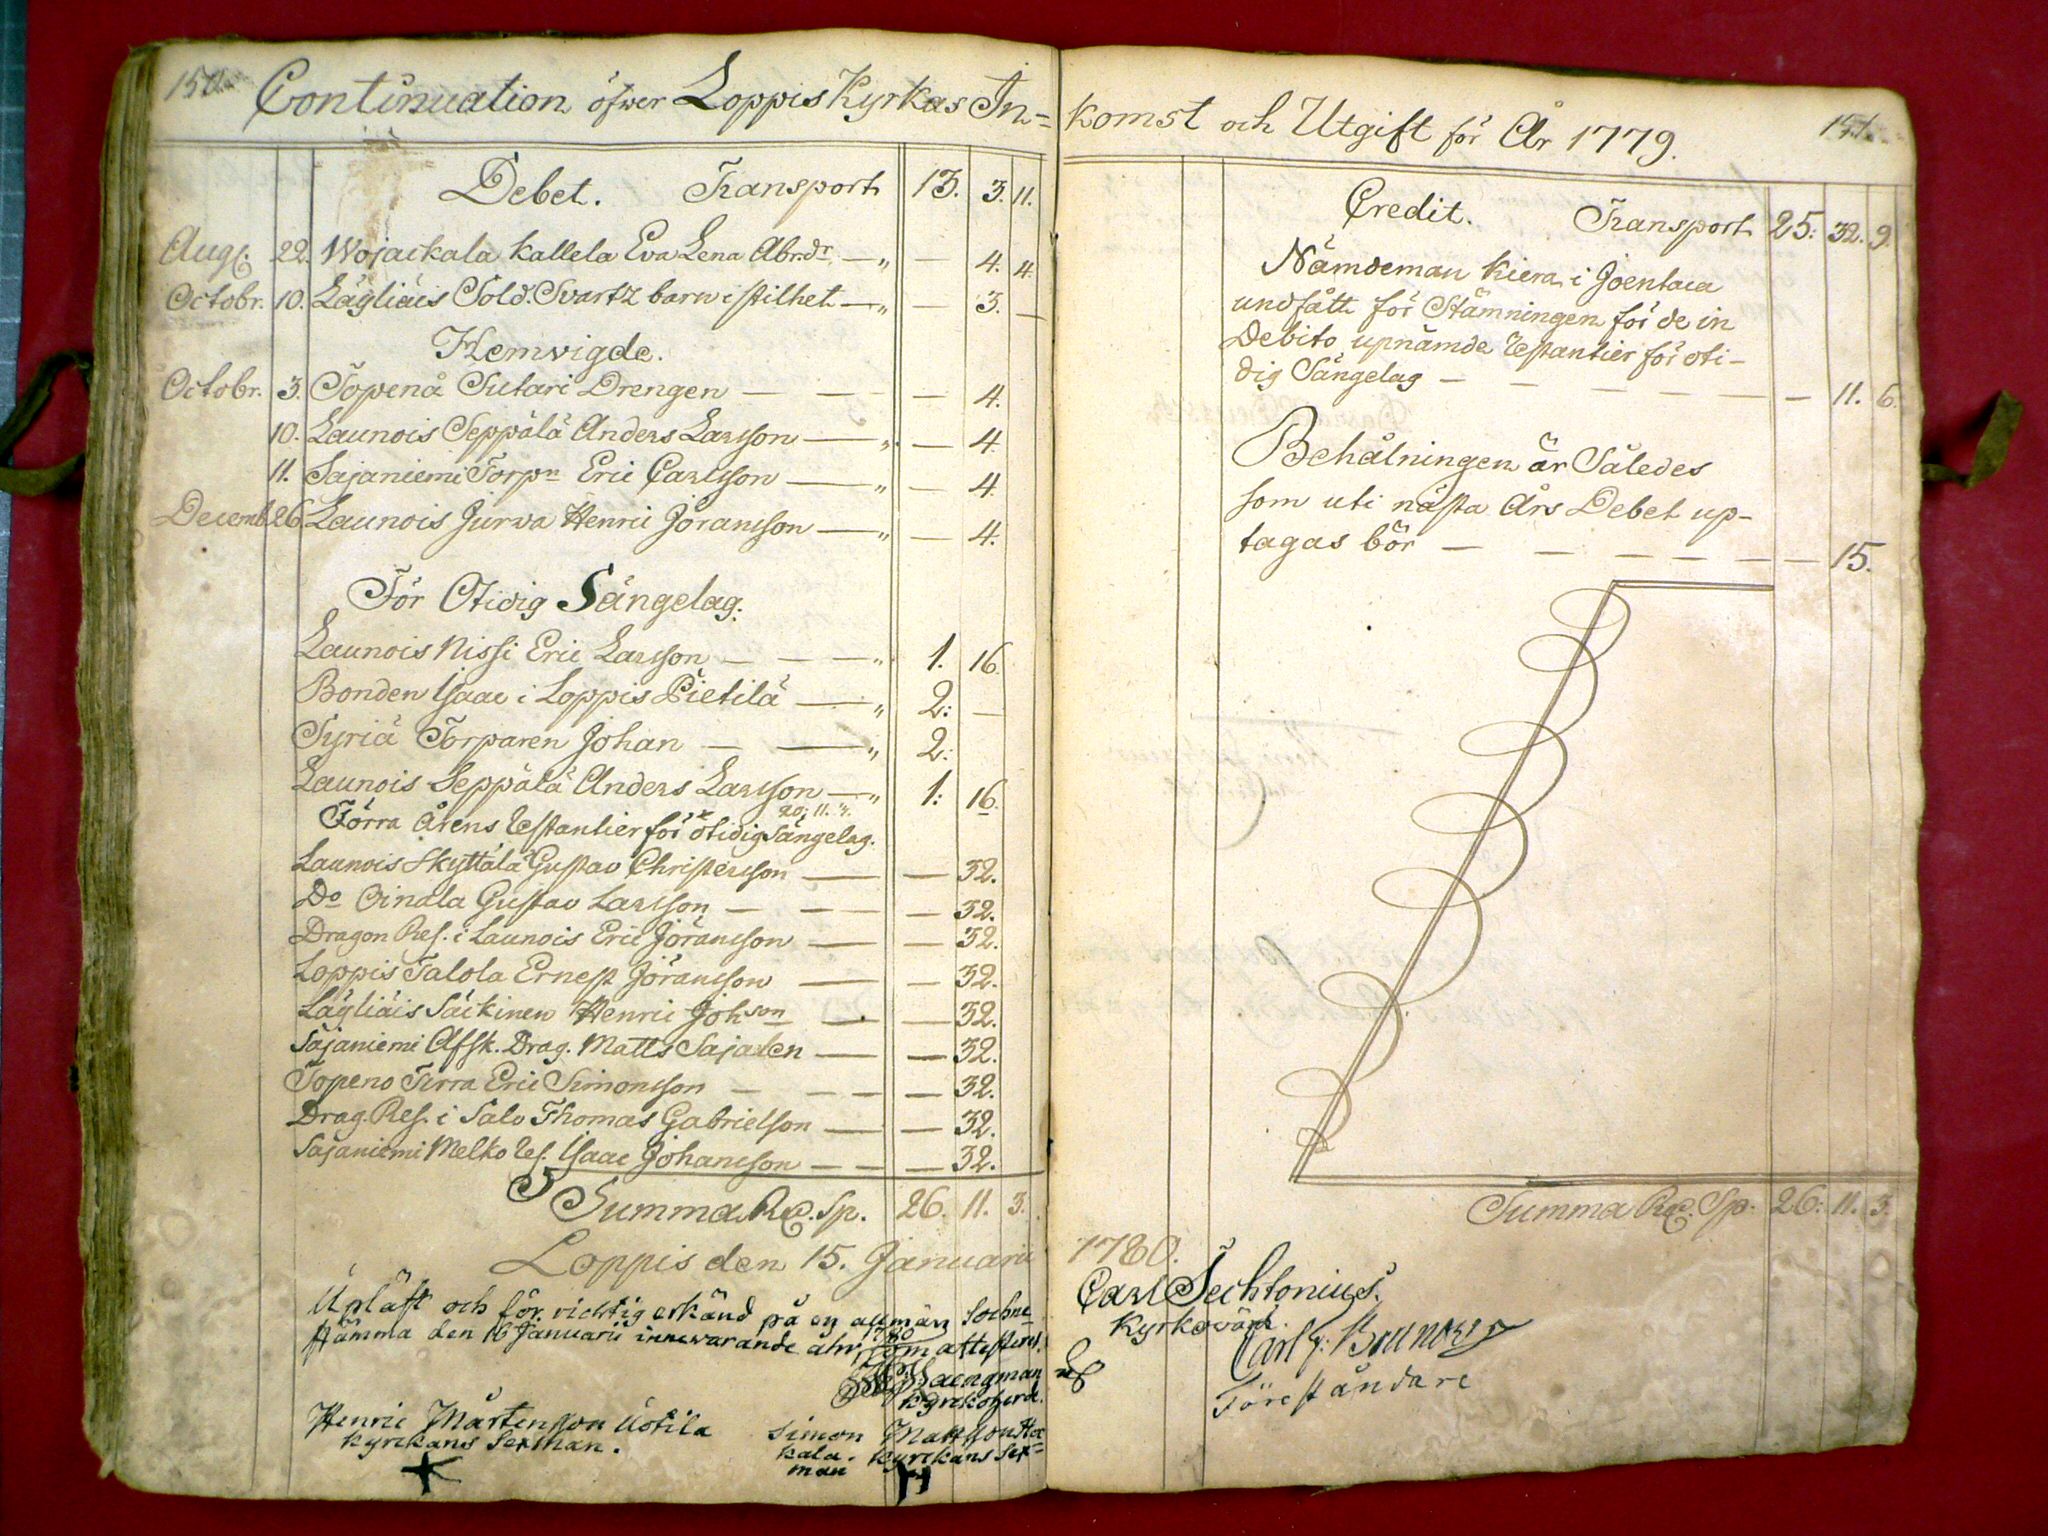 150.
Continuation öfwer Loppis Kyrkas In=
Debet. Transport 13. 3. 11.
Aug. 22. Wojackala Kallela Eva Lena Abr.dr — „ — 4. 4.
Octobr. 10. Lägliäis Sold. Svartz barn i stilhet — „ — 3. —
Hemvigde.
Octobr. 3. Topenå Sutari Drengen — — — 4.
10. Launois Seppälä Anders Larsson — „ — 4.
11. Sajaniemi Torpn Eric Carlsson — „ — 4.
Decemb. 26. Launois Jurwa Henric Joransson — „ — 4.
För Otidig Sängelag.
Launois Nissi Eric Larsson — — — „ 1. 16.
Bonden Isaac i Loppis Pietilä — „ 2: —
Syriä Torparen Johan — — „ 2:
Launois Seppälä Anders Larsson — „ 1: 16.
20: 11. 3.
Förra Årens Restantier för otidig Sängelag.
Launois Skyttälä Gustav Christersson — — 32.
Do Oinala Gustav Larsson — — — — 32.
Dragon Res. i Launois Eric Jöransson — — 32.
Loppis Talola Ernest Jöransson — — 32.
Lägliäis Säikinen Henric Johson — — 32.
Sajaniemi Afsk. Drag. Matts Sajalen — — 32.
Topeno Tirra Eric Simonsson — — — — 32.
Drag. Res. i Salo Thomas Gabrielson — — 32.
Sajaniemi Melko Isaac Johansson — — — 32.
Summa Rd. Sp. 26. 11. 3.
Loppis den 15. Januarii
Upläst och för richtig erkänd på en allmän Sochne
stämma den 16 Januarii innevarande åhr 1780 som attesteras.
Kyrkoherd.
Henric Mårtensson Uotila
Kyrckans Sexman.
Simon Mattsson Ha
kala. Kyrckans Sex=
man
151.
komst och Utgift för År 1779.
Credit. Transport 25: 32. 9.
Nämdeman Kiera i Joentaca
undfått för Stämningen för de in
Debito upnämde Restantier för oti-
dig Sängelag — — — — — — — 11. 6.
Behålningen är Således
som uti nästa Års Debet up-
tagas bör — — — — — — 15.
Summa Rd. Sp. 26: 11. 3.
1780.
Carl Sechtonius.
Kyrkovärd.
Carl J: Brunow
Föreståndare